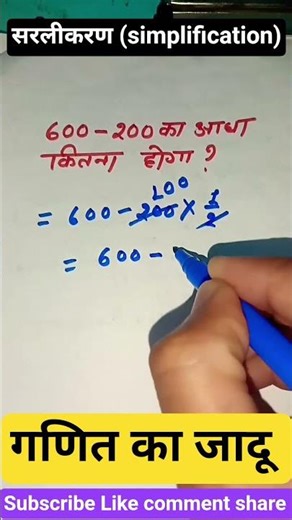 सरलीकरण (simplification)
600 - 200 का आधा
कितना होगा ?
100
= 600 - 200 × 1/2
= 600 -
गणित का जादू
Subscribe Like comment share